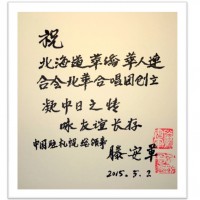 祝
北海道華僑華人連
合会北華合唱团创立
凝中日之情
咏友谊长存
中国駐札幌総領事
滕安軍
2015.5.2